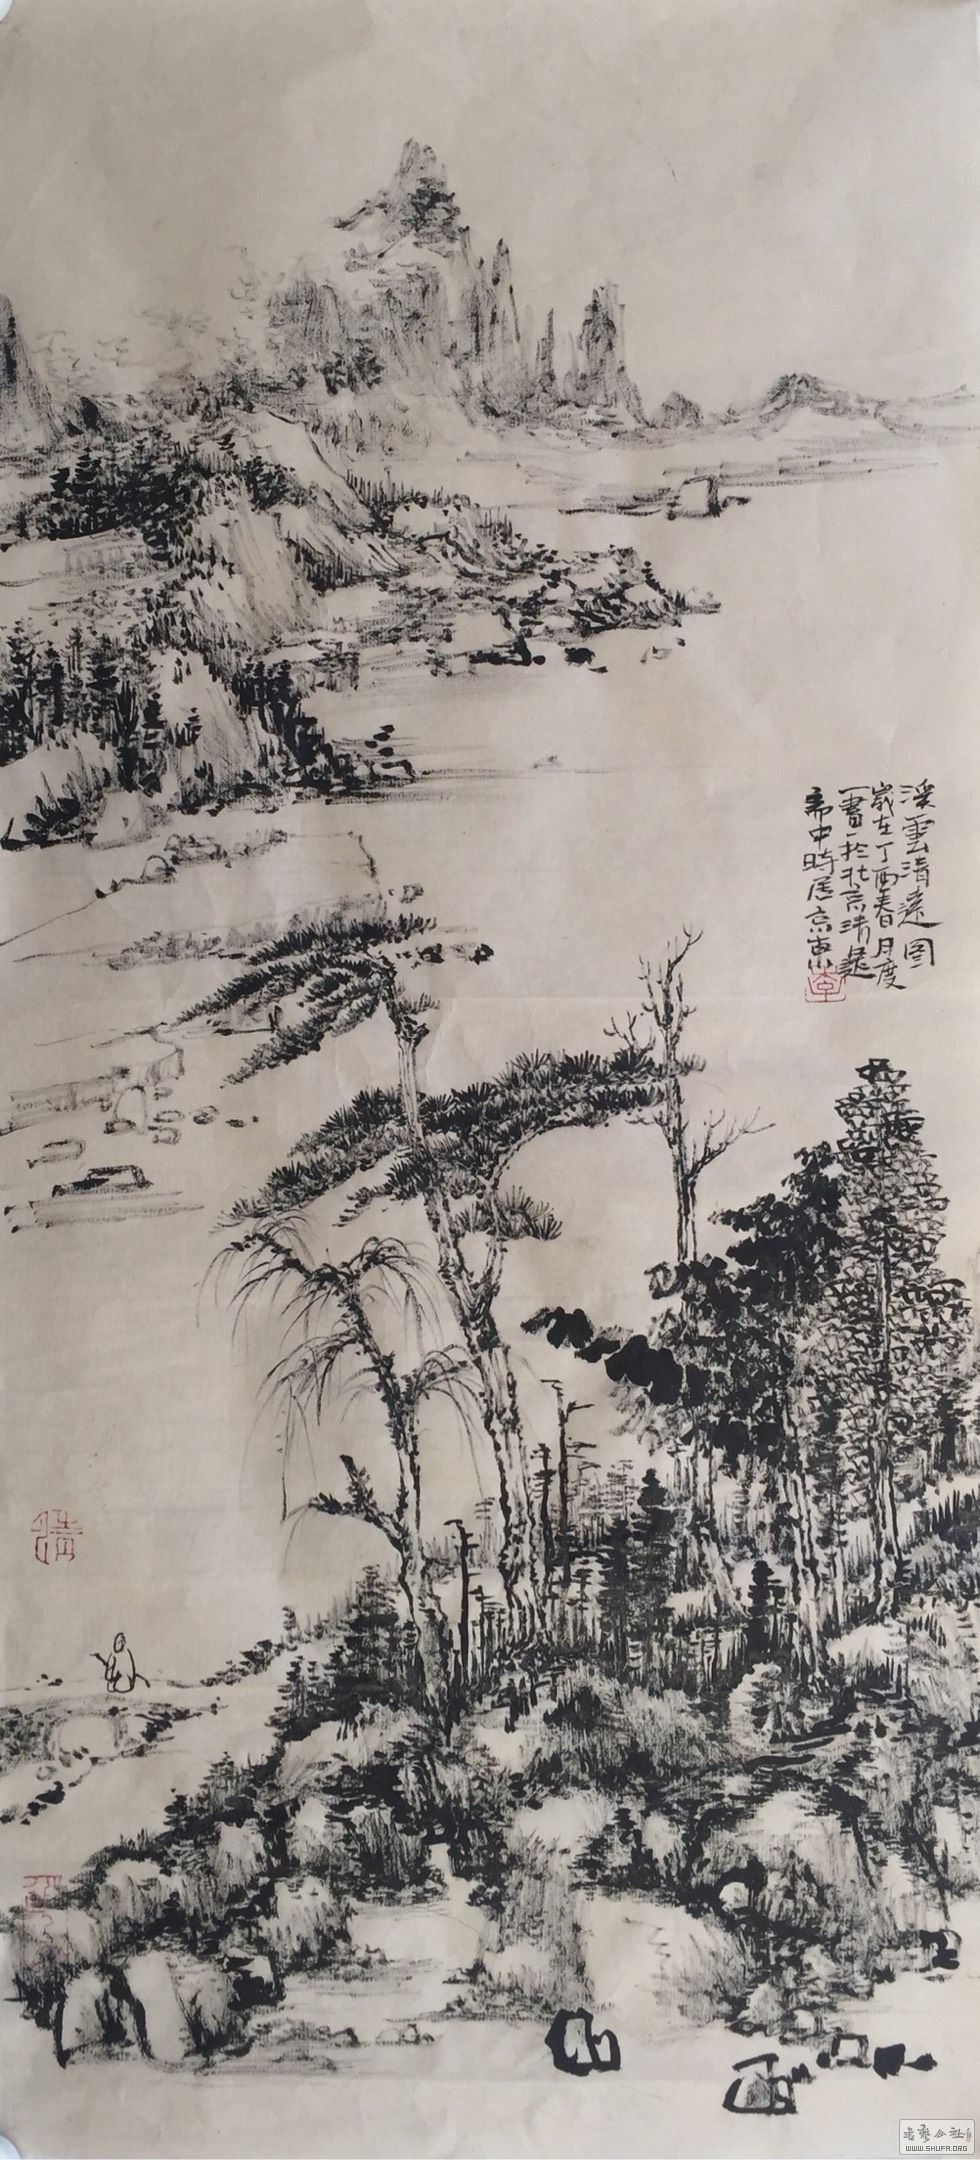 溪雲清遠图
歲在丁酉春月度
一書於北京清遠
斋中時居京東
書藝公社
WWW.SHUFA.ORG